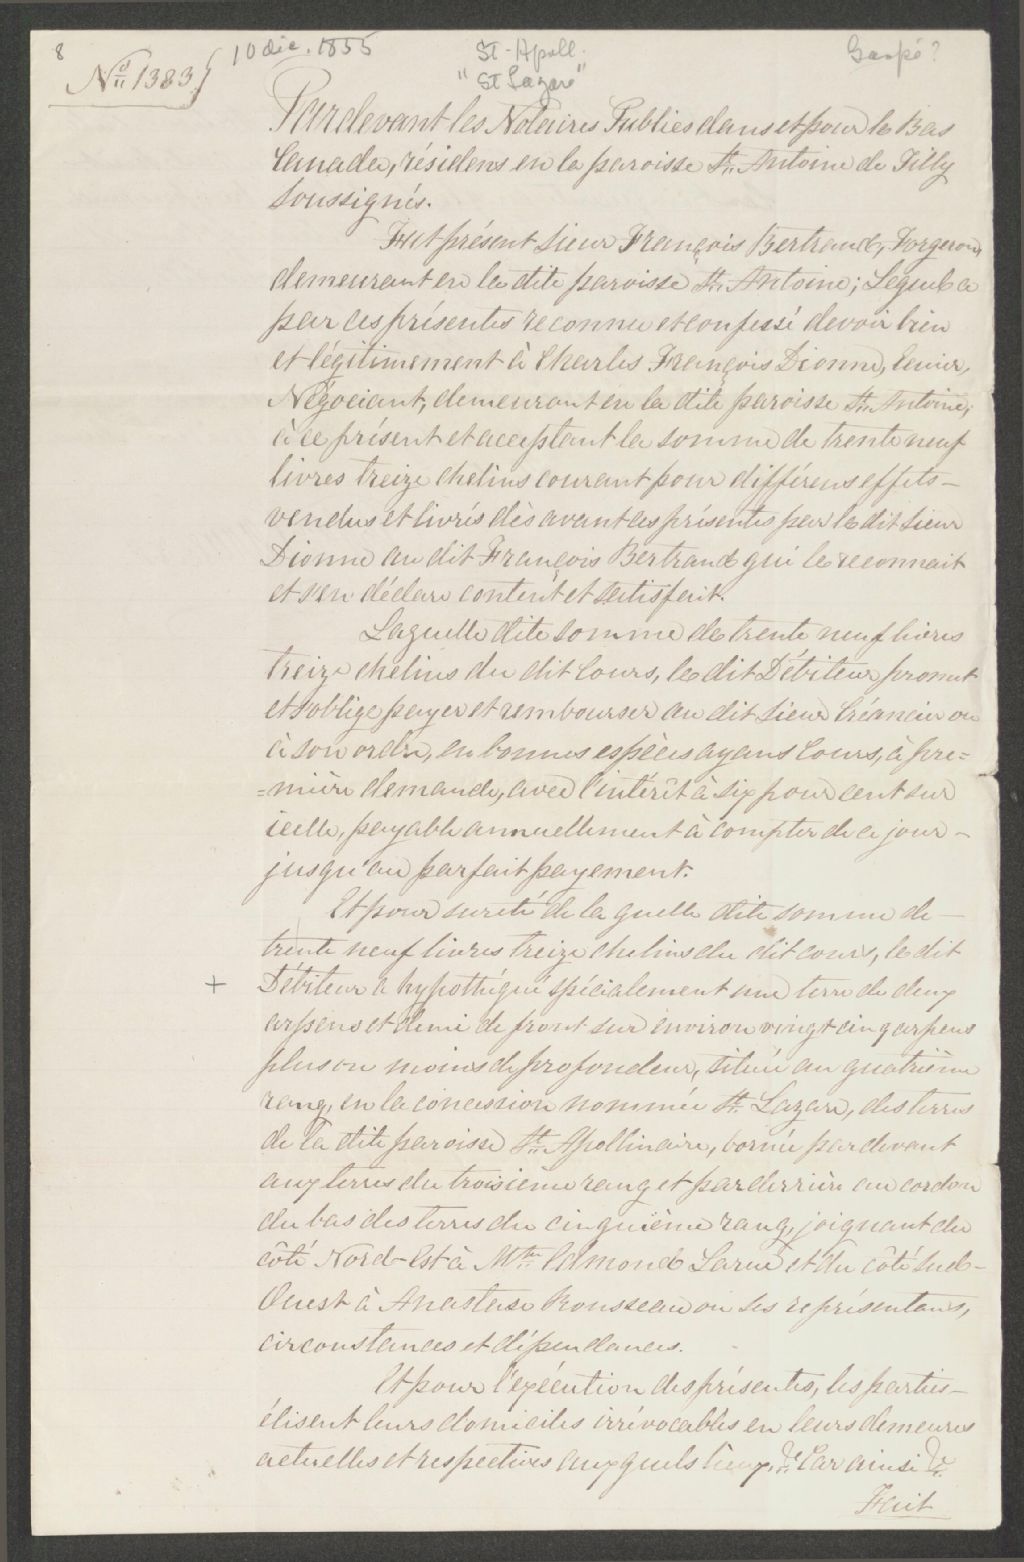 8
10 déc. 1855
St-Apoll.
Gaspé?
"St Lazare"
No. 1383
Pardevant les Notaires Publics dans et pour le Bas
Canada, résidens en la paroisse St. Antoine de Tilly
Soussignés.
Fut présent Sieur François Bertrand, Forgeron,
demeurant en la dite paroisse St. Antoine; Lequel a
par ces présentes reconnu et confessé devoir bien
et légitimement à Charles François Dionne, Ecuier,
Négociant, demeurant en la dite paroisse St. Antoine,
à ce présent et acceptant la somme de trente neuf
livres treize chelins courant pour différens effets-
vendus et livrés dès avant ces présentes par le dit Sieur
Dionne au dit François Bertrand qui le reconnait
et s'en déclare content et satisfait.
Laquelle dite somme de trente neuf livres
treize chelins du dit Cours, le dit Débiteur promet
et s'oblige payer et rembourser au dit Sieur Créancier ou
à son ordre, en bonnes espèces ayans Cours, à pre=
=mière demande, avec l'intérêt à six pour cent sur
icelle, payable annuellement à compter de ce jour-
jusqu'au parfait payement.
Et pour sureté de la quelle dite somme de-
trente neuf livres treize chelins du dit cours, le dit
+ Débiteur a hypothéqué spécialement une terre de deux
arpens et demi de front sur environ vingt cinq arpens
plus ou moins de profondeur, située au quatrième
rang, en la concession nommée St. Lazare, des terres
de la dite paroisse St. Apollinaire, bornée par devant
aux terres du troisième rang et par derrière au cordon
du bas des terres du cinquième rang, joignant du
côté Nord-Est à Mtre. Edmond Larue et du côté Sud-
Ouest à Anastase Rousseau ou ses représentans,
circonstances et dépendances.
Et pour l'exécution des présentes, les parties-
élisent leurs domiciles irrévocables en leurs demeures
actuelles et respectives auxquels lieux, &c. Car ainsi &c.
Fait